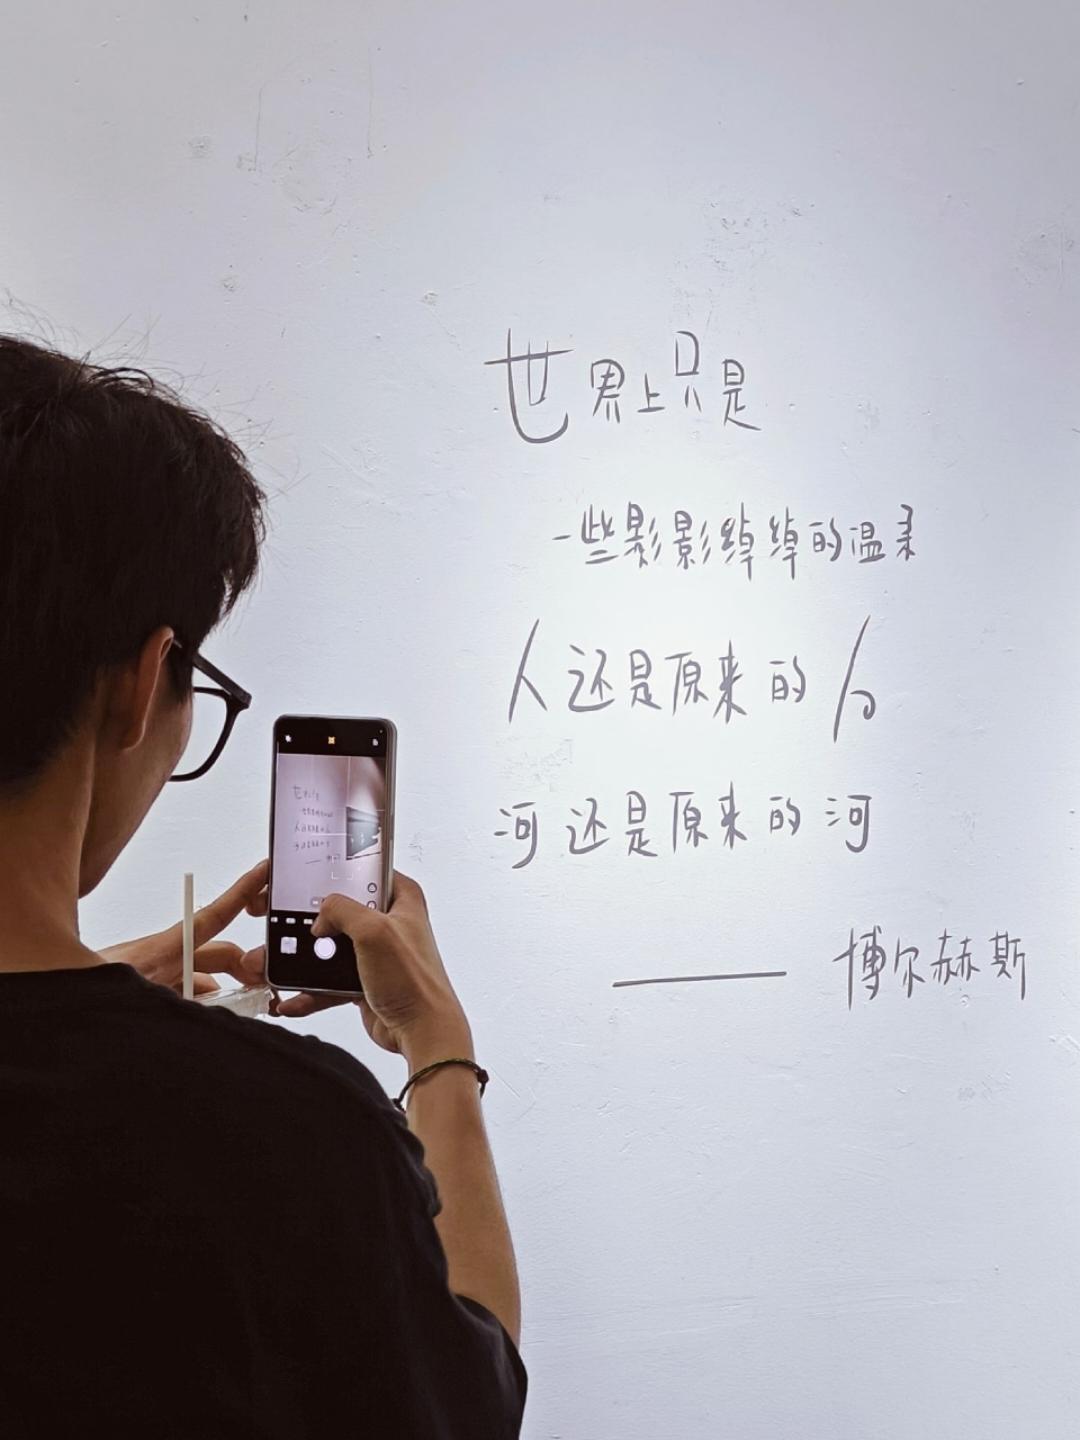 世界上只是
一些影影绰绰的温柔
人还是原来的人
河还是原来的河
—— 博尔赫斯